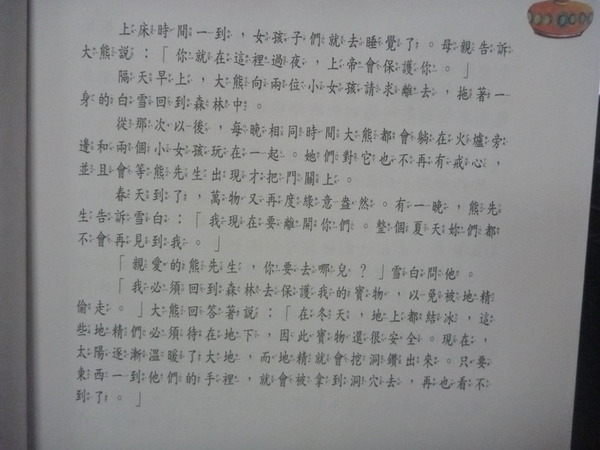 上床時間一到，女孩子們就去睡覺了。母親告訴
大熊說：「你就在這裡過夜，上帝會保護你。」
隔天早上，大熊向兩位小女孩請求離去，拖著一
身的白雪回到森林中。
從那次以後，每晚相同時間大熊都會躺在火爐旁
邊和兩個小女孩玩在一起。她們對它也不再有戒心，
並且會等熊先生出現才把門關上。
春天到了，萬物又再度綠意盎然。有一晚，熊先
生告訴雪白：「我現在要離開你們。整個夏天妳們都
不會再見到我。」
「親愛的熊先生，你要去哪兒？」雪白問他。
「我必須回到森林去保護我的寶物，以免被地精
偷走。」大熊回答著說：「在冬天，地上都結冰，這
些地精們必須待在地下，因此寶物還很安全。現在，
太陽逐漸溫暖了大地，而地精就會挖洞鑽出來。只要
東西一到他們的手裡，就會被拿到洞穴去，再也看不
到了。」